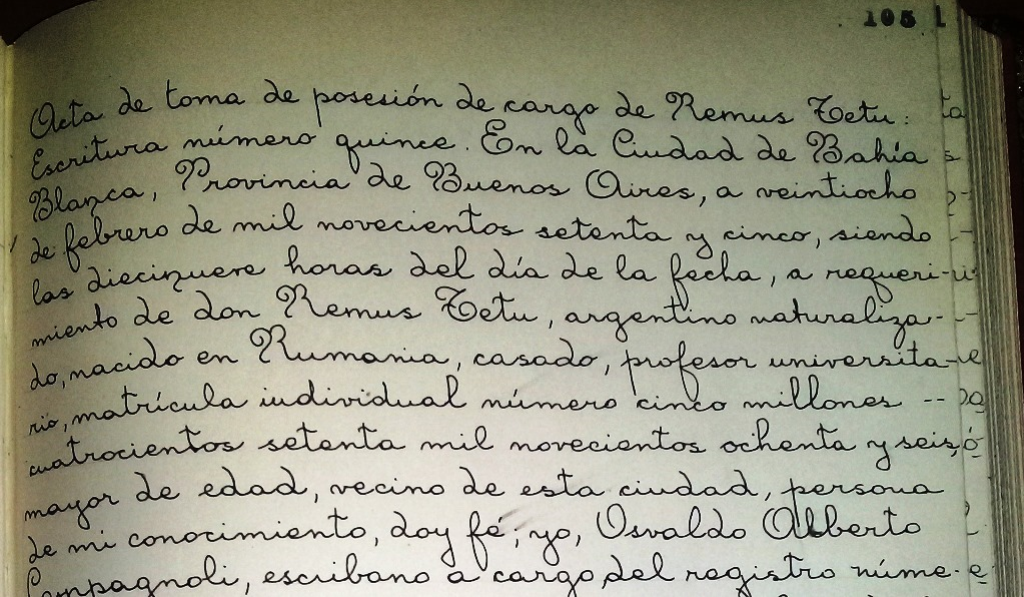 105
Acta de toma de posesión de cargo de Remus Tetu:
Escritura número quince. En la Ciudad de Bahía
Blanca, Provincia de Buenos Aires, a veintiocho
de febrero de mil novecientos setenta y cinco, siendo
las diecinueve horas del día de la fecha, a requeri-
miento de don Remus Tetu, argentino naturaliza-
do, nacido en Rumania, casado, profesor universita-
rio, matrícula individual número cinco millones --
cuatrocientos setenta mil novecientos ochenta y seis,
mayor de edad, vecino de esta ciudad, persona
de mi conocimiento, doy fé; yo, Osvaldo Alberto
Campagnoli, escribano a cargo del registro núme-